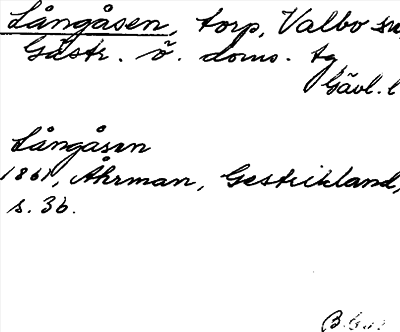 Långåsen, torp, Valbo sn,
Gästr. ö. doms. tg,
Gävl. l
Långåsen
1861, Åhrman, Gestrikland,
s. 36.